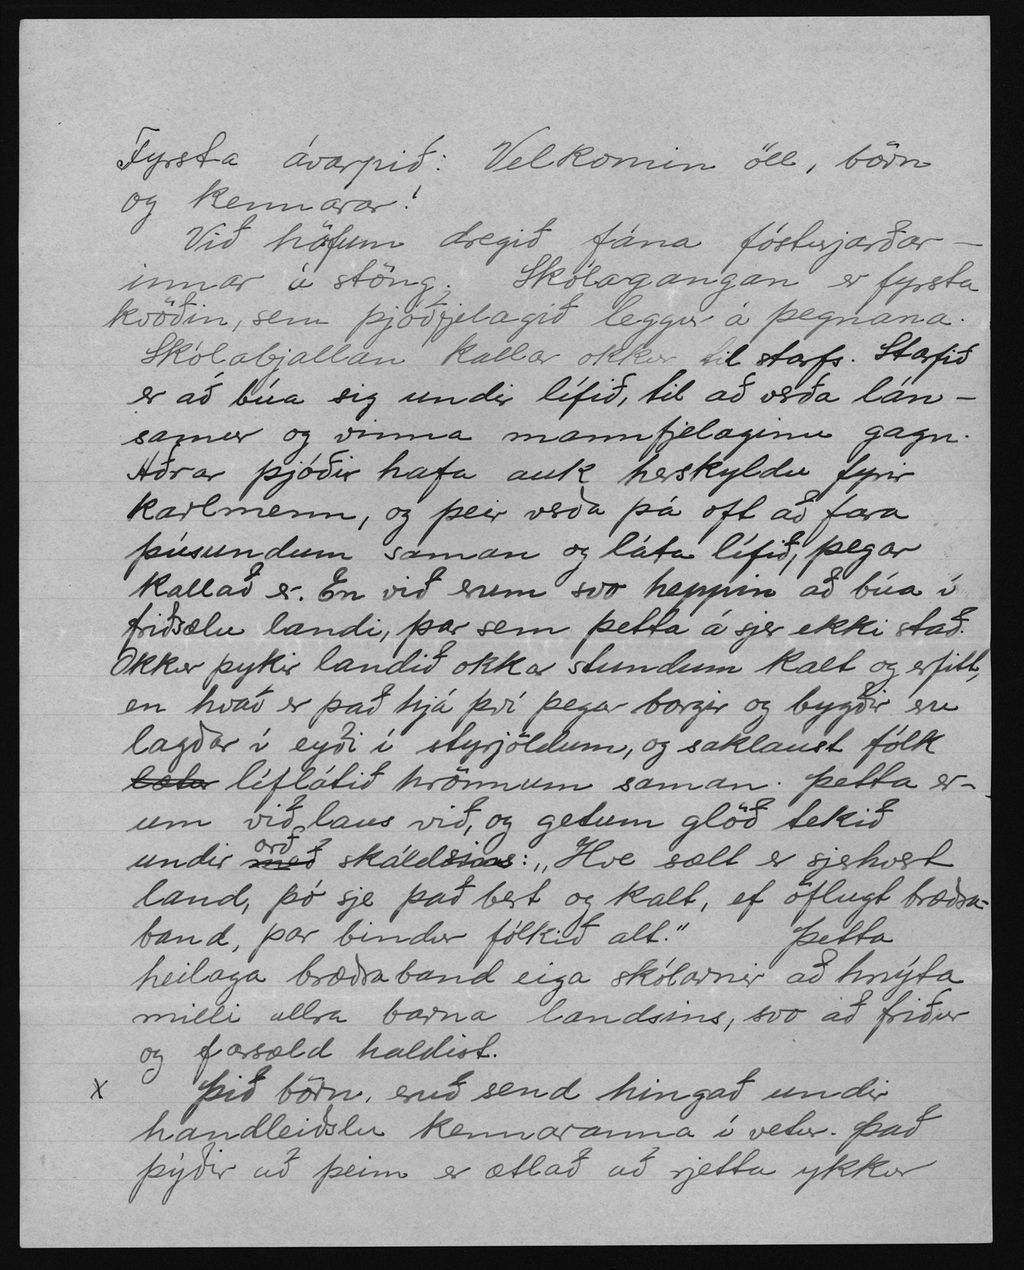 Fyrsta ávarpið: Velkomin öll, börn
og kennarar!
Við höfum dregið fána fósturjarðar-
innar á stöng. Skólagangan er fyrsta
kvöðin, sem þjóðfjelagið leggur á þegnana.
Skólabjallan kallar okkur til starfs. Starfið
er að búa sig undir lífið, til að verða lán-
samur og vinna mannfjelaginu gagn.
Aðrar þjóðir hafa auk herskyldu fyrir
karlmenn, og þeir verða þá oft að fara
þúsundum saman og láta lífið, þegar
kallað er. En við erum svo heppin að búa í
friðsælu landi, þar sem þetta á sjer ekki stað.
Okkur þykir landið okkar stundum kalt og erfitt,
en hvað er það hjá því þegar borgir og bygðir eru
lagðar í eyði í styrjöldum, og saklaust fólk
læta líflátið hrönnum saman. Þetta er-
um við laus við, og getum glöð tekið
undir með orð skáldsins: „Hve sælt er sjerhvert
land, þó sje það bert og kalt, ef öflugt bræðra-
band, þar bindur fólkið alt." Þetta
heilaga bræðraband eiga skólarnir að hnýta
milli allra barna landsins, svo að friður
og farsæld haldist.
x Þið börn, eruð send hingað undir
handleiðslu kennaranna í vetur. Það
þýðir að þeim er ætlað að rjetta ykkur